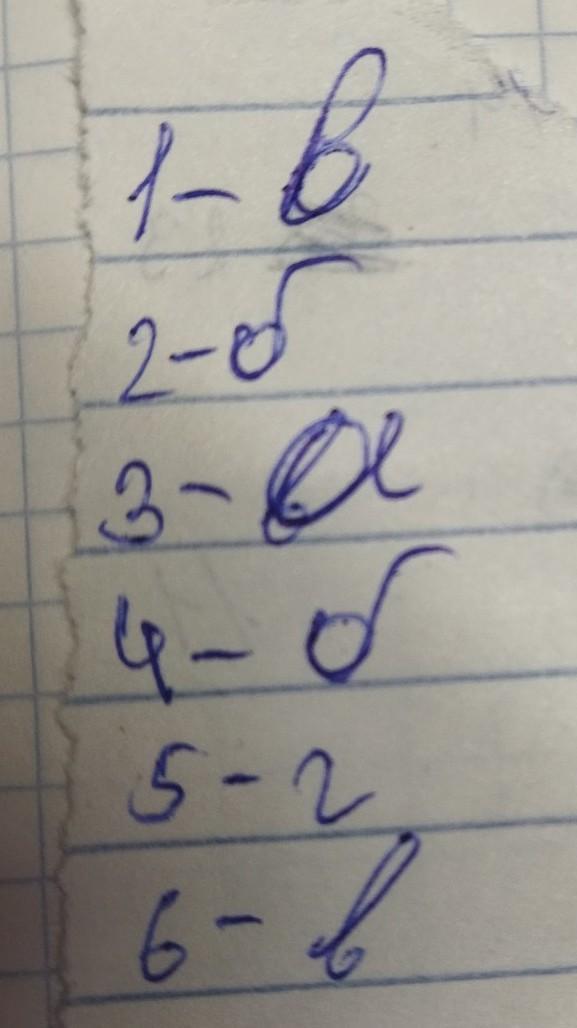 1 - в
2 - б
3 - а
4 - б
5 - г
6 - в